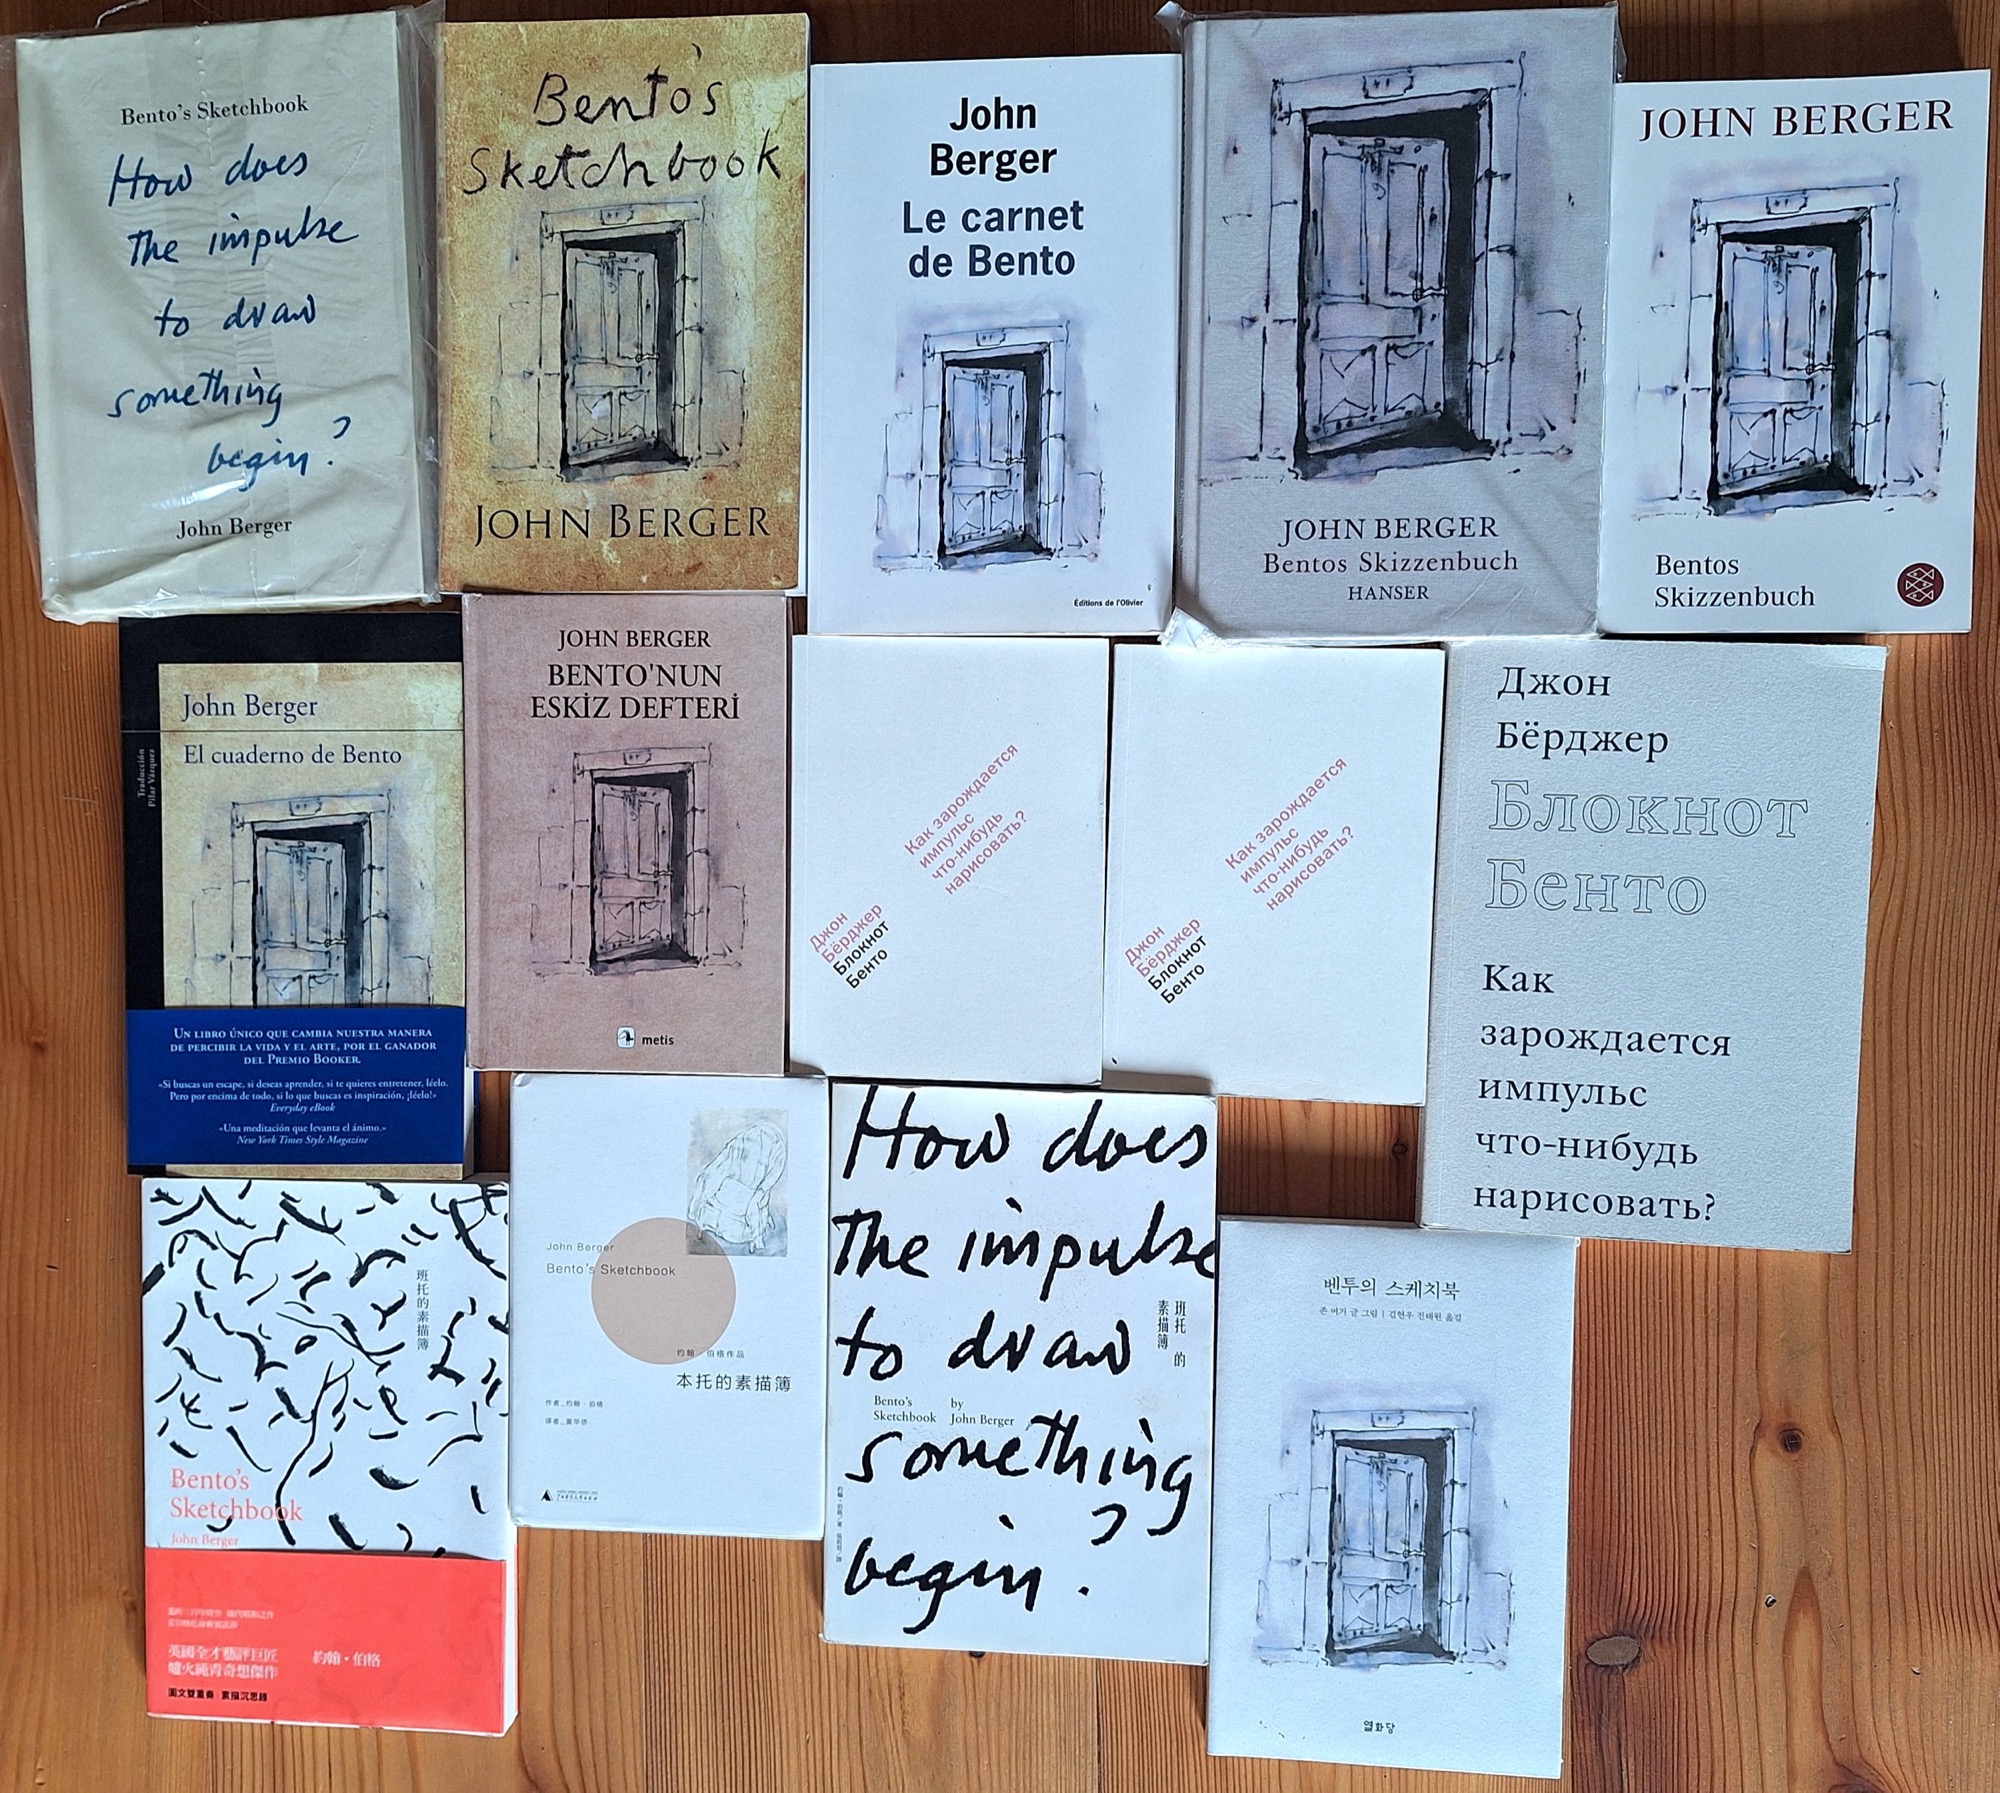 Bento's Sketchbook
How does
the impulse
to draw
something
begin?
John Berger
Bento's
Sketchbook
JOHN BERGER
John
Berger
Le carnet
de Bento
Éditions de l'Olivier
JOHN BERGER
Bentos Skizzenbuch
HANSER
JOHN BERGER
Bentos
Skizzenbuch
John Berger
El cuaderno de Bento
Traducción
Pilar Vázquez
UN LIBRO ÚNICO QUE CAMBIA NUESTRA MANERA
DE PERCIBIR LA VIDA Y EL ARTE, POR EL GANADOR
DEL PREMIO BOOKER.
«Si buscas un escape, si deseas aprender, si te quieres entretener, léelo.
Pero por encima de todo, si lo que buscas es inspiración, ¡léelo!»
Everyday eBook
«Una meditación que levanta el ánimo.»
New York Times Style Magazine
JOHN BERGER
BENTO'NUN
ESKİZ DEFTERİ
metis
Как зарождается
импульс
что-нибудь
нарисовать?
Джон
Бёрджер
Блокнот
Бенто
Как зарождается
импульс
что-нибудь
нарисовать?
Джон
Бёрджер
Блокнот
Бенто
Джон
Бёрджер
Блокнот
Бенто
Как
зарождается
импульс
что-нибудь
нарисовать?
班托的素描簿
Bento's
Sketchbook
John Berger
英國全才藝評巨匠
爐火純青奇想傑作
約翰・伯格
圖文雙重奏 素描沉思錄
John Berger
Bento's Sketchbook
约翰·伯格作品
本托的素描簿
作者_约翰·伯格
译者_黄华侨
How does
the impulse
to draw
something
begin?
班托的
素描簿
Bento's
Sketchbook
by
John Berger
벤투의 스케치북
존 버거 글 그림 | 김현우 진태원 옮김
열화당